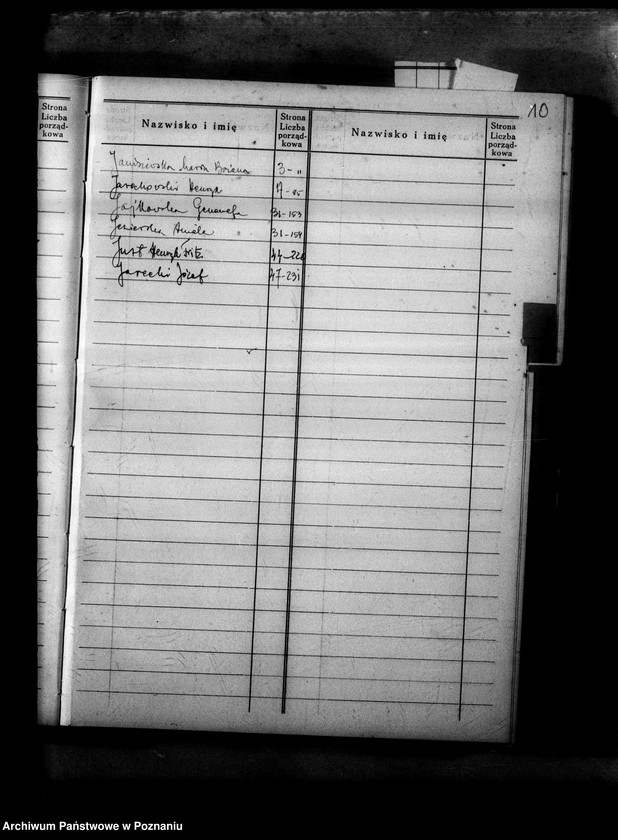 10
Strona
Liczba
porząd-
kowa
Nazwisko i imię
Strona
Liczba
porząd-
kowa
Nazwisko i imię
Strona
Liczba
porząd-
kowa
Janiszewska Maria Bożena 3-11
Jarachowski Henryk
Jajkowska Genowefa 31-153
Jezierska Aniela 31-154
Just Henryk
Jarecki Józef 47-231
Archiwum Państwowe w Poznaniu